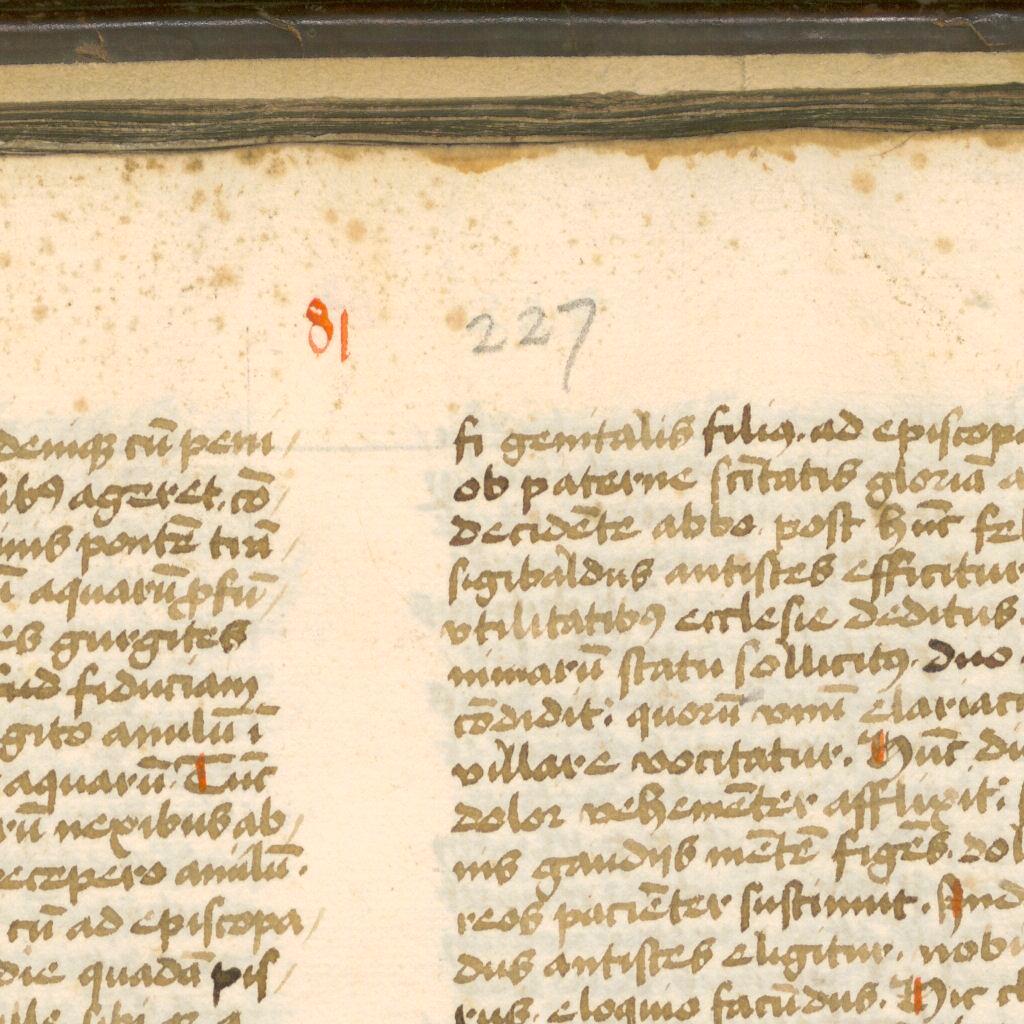 81 227
denique cū peni
ibꝰ ageret. cō
pontē trā
aquarū ꝓfū
es gurgites
ud fiduciam
gito anulū ī
aquarū. Tūc
rū nexibus ab
recepero anulū.
cū ad episcopa
die quadā pis
fi genitalis filiꝰ. ad episcopa
ob paterne scītatis gloriā a
decidēte abbo. post hūc fel
sigibaldus antistes efficitur
vtilitatibꝰ ecclesie deditus
nimarū statu sollicitꝰ. duo
cōdidit: quorū vnū elariaci
villare vocitatur. Hūc di
dolor vehemēter afflixit:
nis gaudijs mētē figēs. dol
reos paciēter sustinuit. And
dus antistes eligitur. nobi
rus. eloquio facūdus. Hic cl